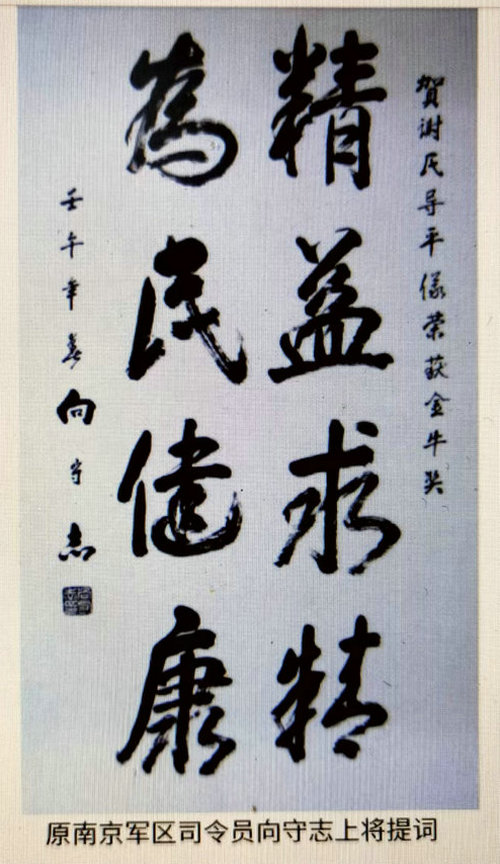 贺谢氏导平仪荣获金牛奖
精益求精
為民健康
壬午年春向守志
原南京军区司令员向守志上将提词